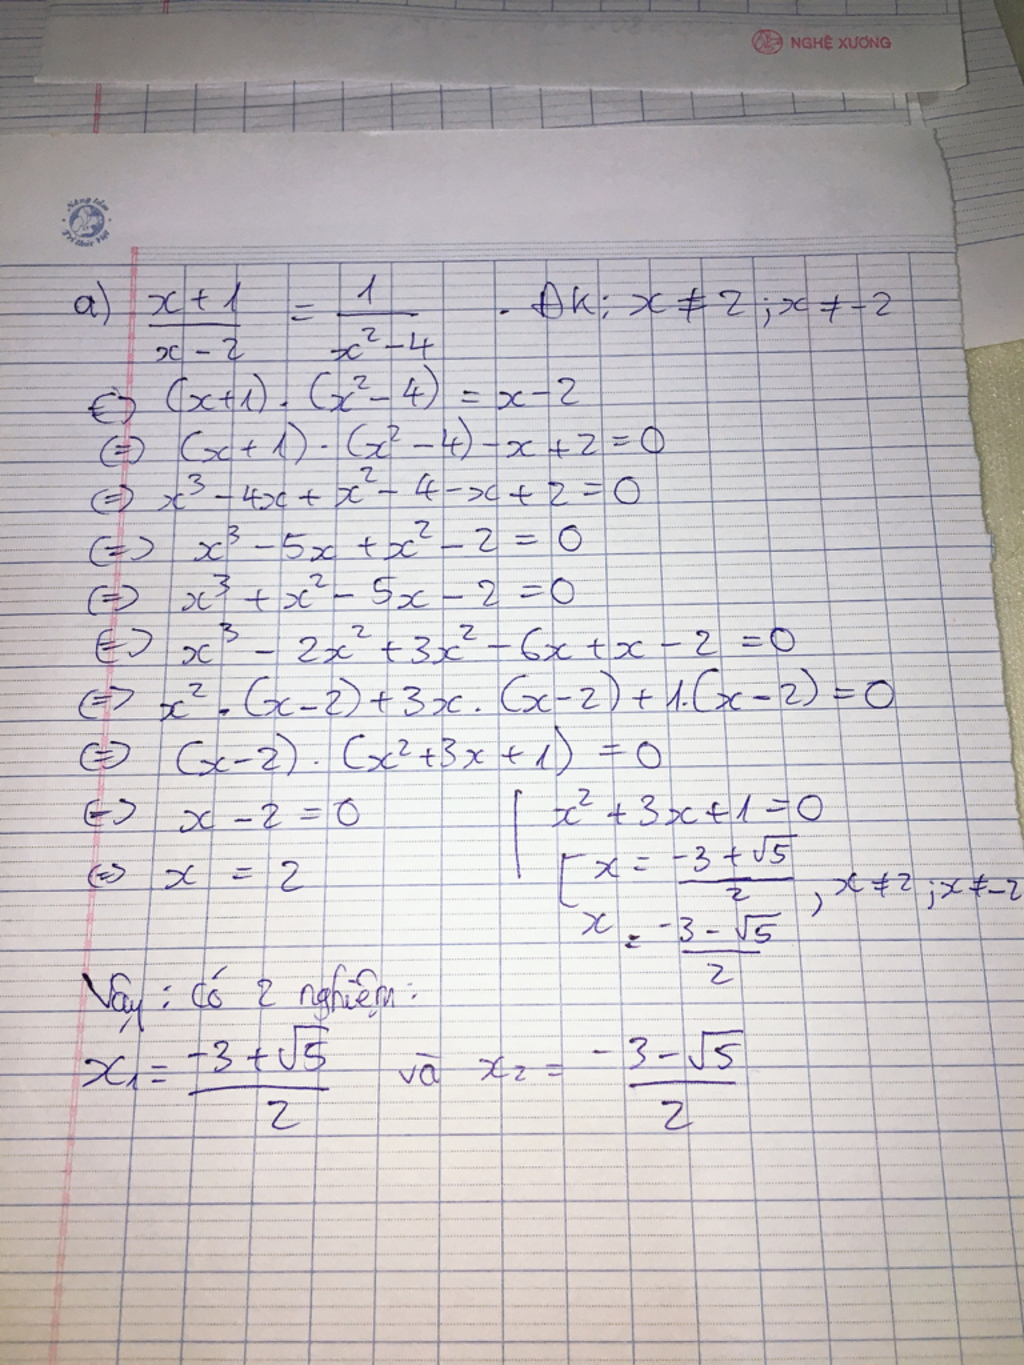 NGHỆ XƯƠNG
Nâng tầm
Trí thức Việt
a) (x+1)/(x-2) = 1/(x²-4) . ĐK: x ≠ 2 ; x ≠ -2
<=> (x+1) . (x² - 4) = x - 2
<=> (x+1) . (x² - 4) - x + 2 = 0
<=> x³ - 4x + x² - 4 - x + 2 = 0
<=> x³ - 5x + x² - 2 = 0
<=> x³ + x² - 5x - 2 = 0
<=> x³ - 2x² + 3x² - 6x + x - 2 = 0
<=> x² . (x-2) + 3x . (x-2) + 1.(x-2) = 0
<=> (x-2) . (x² + 3x + 1) = 0
<=> x - 2 = 0 | x² + 3x + 1 = 0
<=> x = 2 | [ x = (-3 + √5)/2 , x ≠ 2 ; x ≠ -2
x = (-3 - √5)/2
Vậy : có 2 nghiệm :
x₁ = (-3 + √5)/2 và x₂ = (-3 - √5)/2